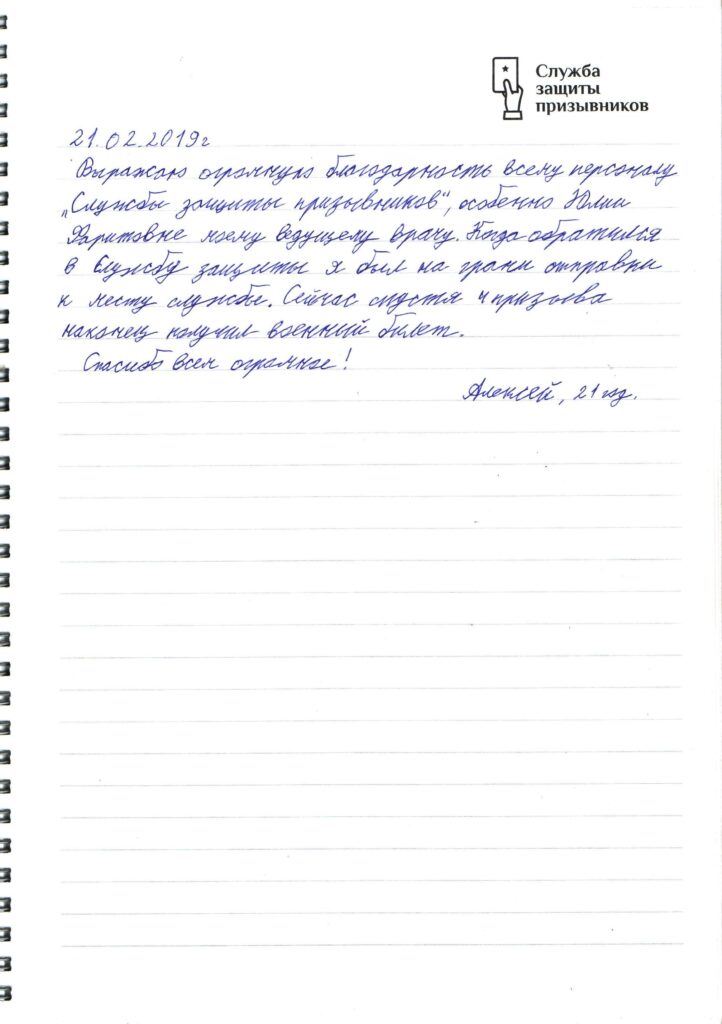 Служба
защиты
призывников
21.02.2019г
Выражаю огромную благодарность всему персоналу
„Службы защиты призывников", особенно Юлии
Фаритовне моему ведущему врачу. Когда обратился
в Службу защиты я был на грани отправки
к месту службы. Сейчас спустя 4 призыва
наконец получил военный билет.
Спасибо всем огромное!
Алексей, 21 год.